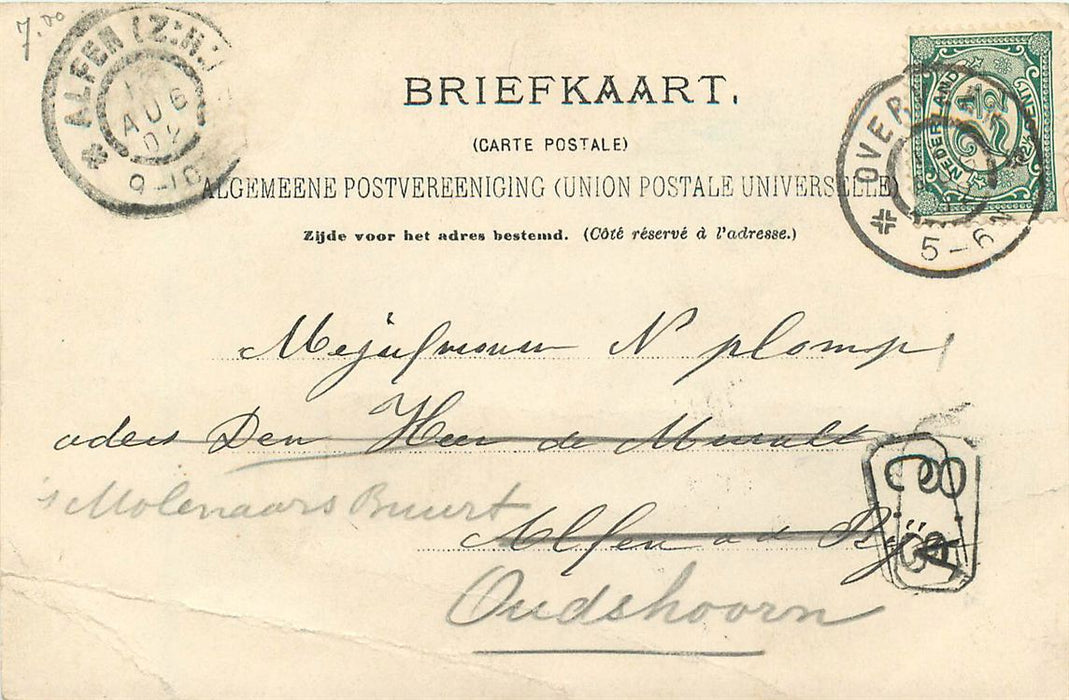 7.00
ALFEN (Z:H.)
AU 6
02
9-10
OVER
5-6N
NEDERLAND
2½
2½ CENT
BRIEFKAART.
(CARTE POSTALE)
ALGEMEENE POSTVEREENIGING (UNION POSTALE UNIVERSELLE)
Zijde voor het adres bestemd. (Côté réservé à l'adresse.)
Mejufvrouw N plomp
adres Den Heer de Muralt
's Molenaars Buurt
Alfen a d Rijn
Oudshoorn